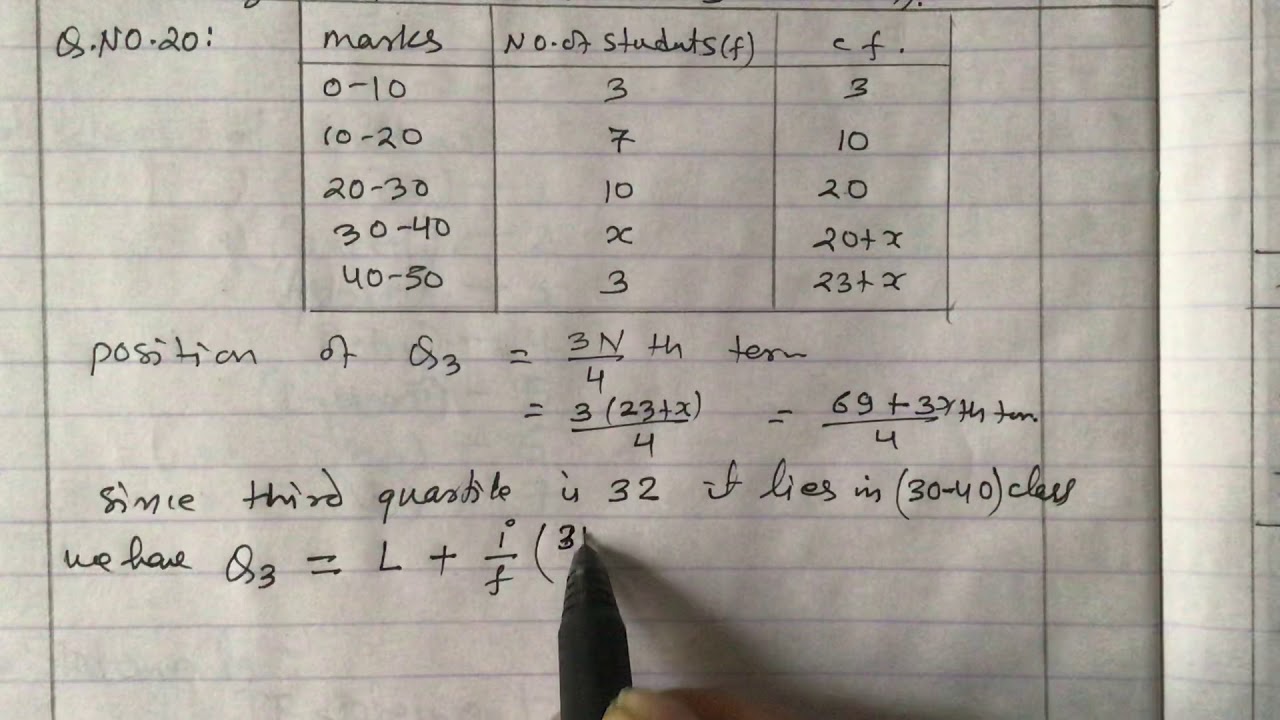 Q.NO.20:
marks No.of students(f) c f.
0-10 3 3
10-20 7 10
20-30 10 20
30-40 x 20+x
40-50 3 23+x
position of Q3 = 3N/4 th term
= 3(23+x)/4 = 69+3x/4 th term.
since third quartile is 32 it lies in (30-40) class
we have Q3 = L + i/f (3